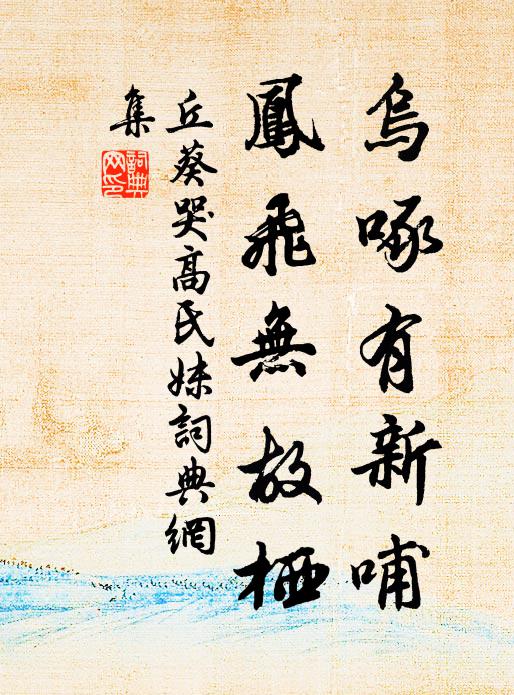 烏啄有新哺
鳳飛無故栖
丘葵哭高氏妹詞典網
集
詞典
网印